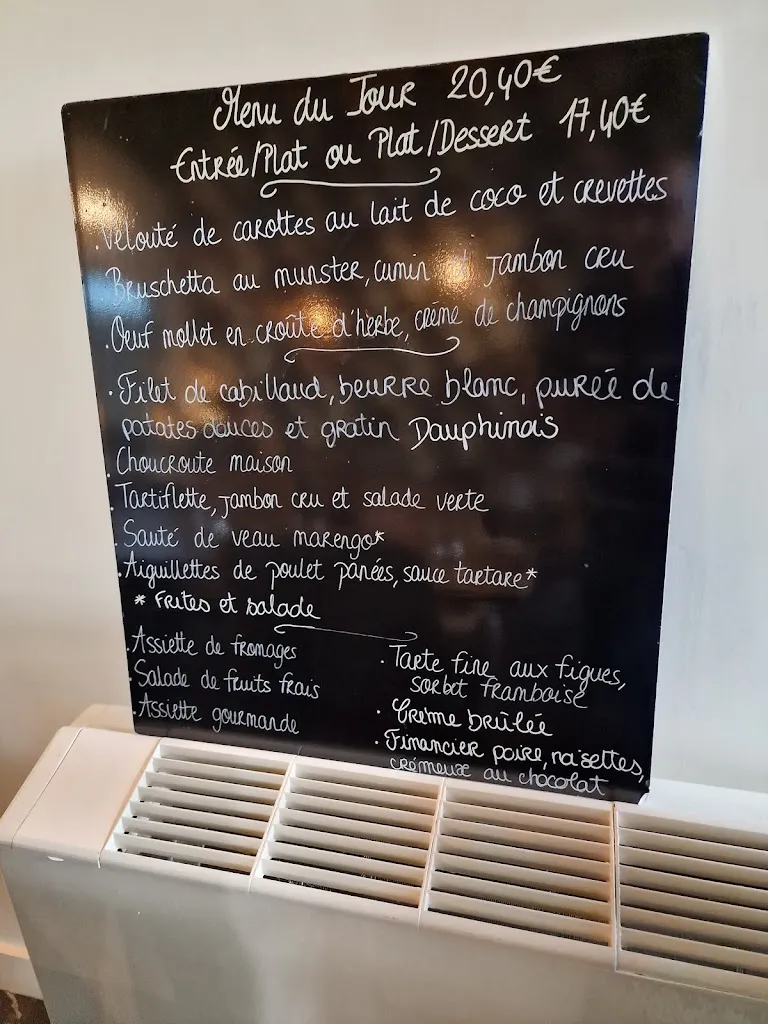 Menu du Jour 20,40€
Entrée/Plat ou Plat/Dessert 17,40€
. Velouté de carottes au lait de coco et crevettes
Bruschetta au munster, cumin et jambon cru
. Oeuf mollet en croûte d'herbe, crème de champignons
. Filet de cabillaud, beurre blanc, purée de
patates douces et gratin Dauphinois
. Choucroute maison
. Tartiflette, jambon cru et salade verte
. Sauté de veau marengo*
. Aiguillettes de poulet panées, sauce tartare*
* Frites et salade
. Assiette de fromages
. Salade de fruits frais
. Assiette gourmande
. Tarte fine aux figues,
sorbet framboise
. Crème brûlée
. Financier poire, noisettes,
crémeux au chocolat